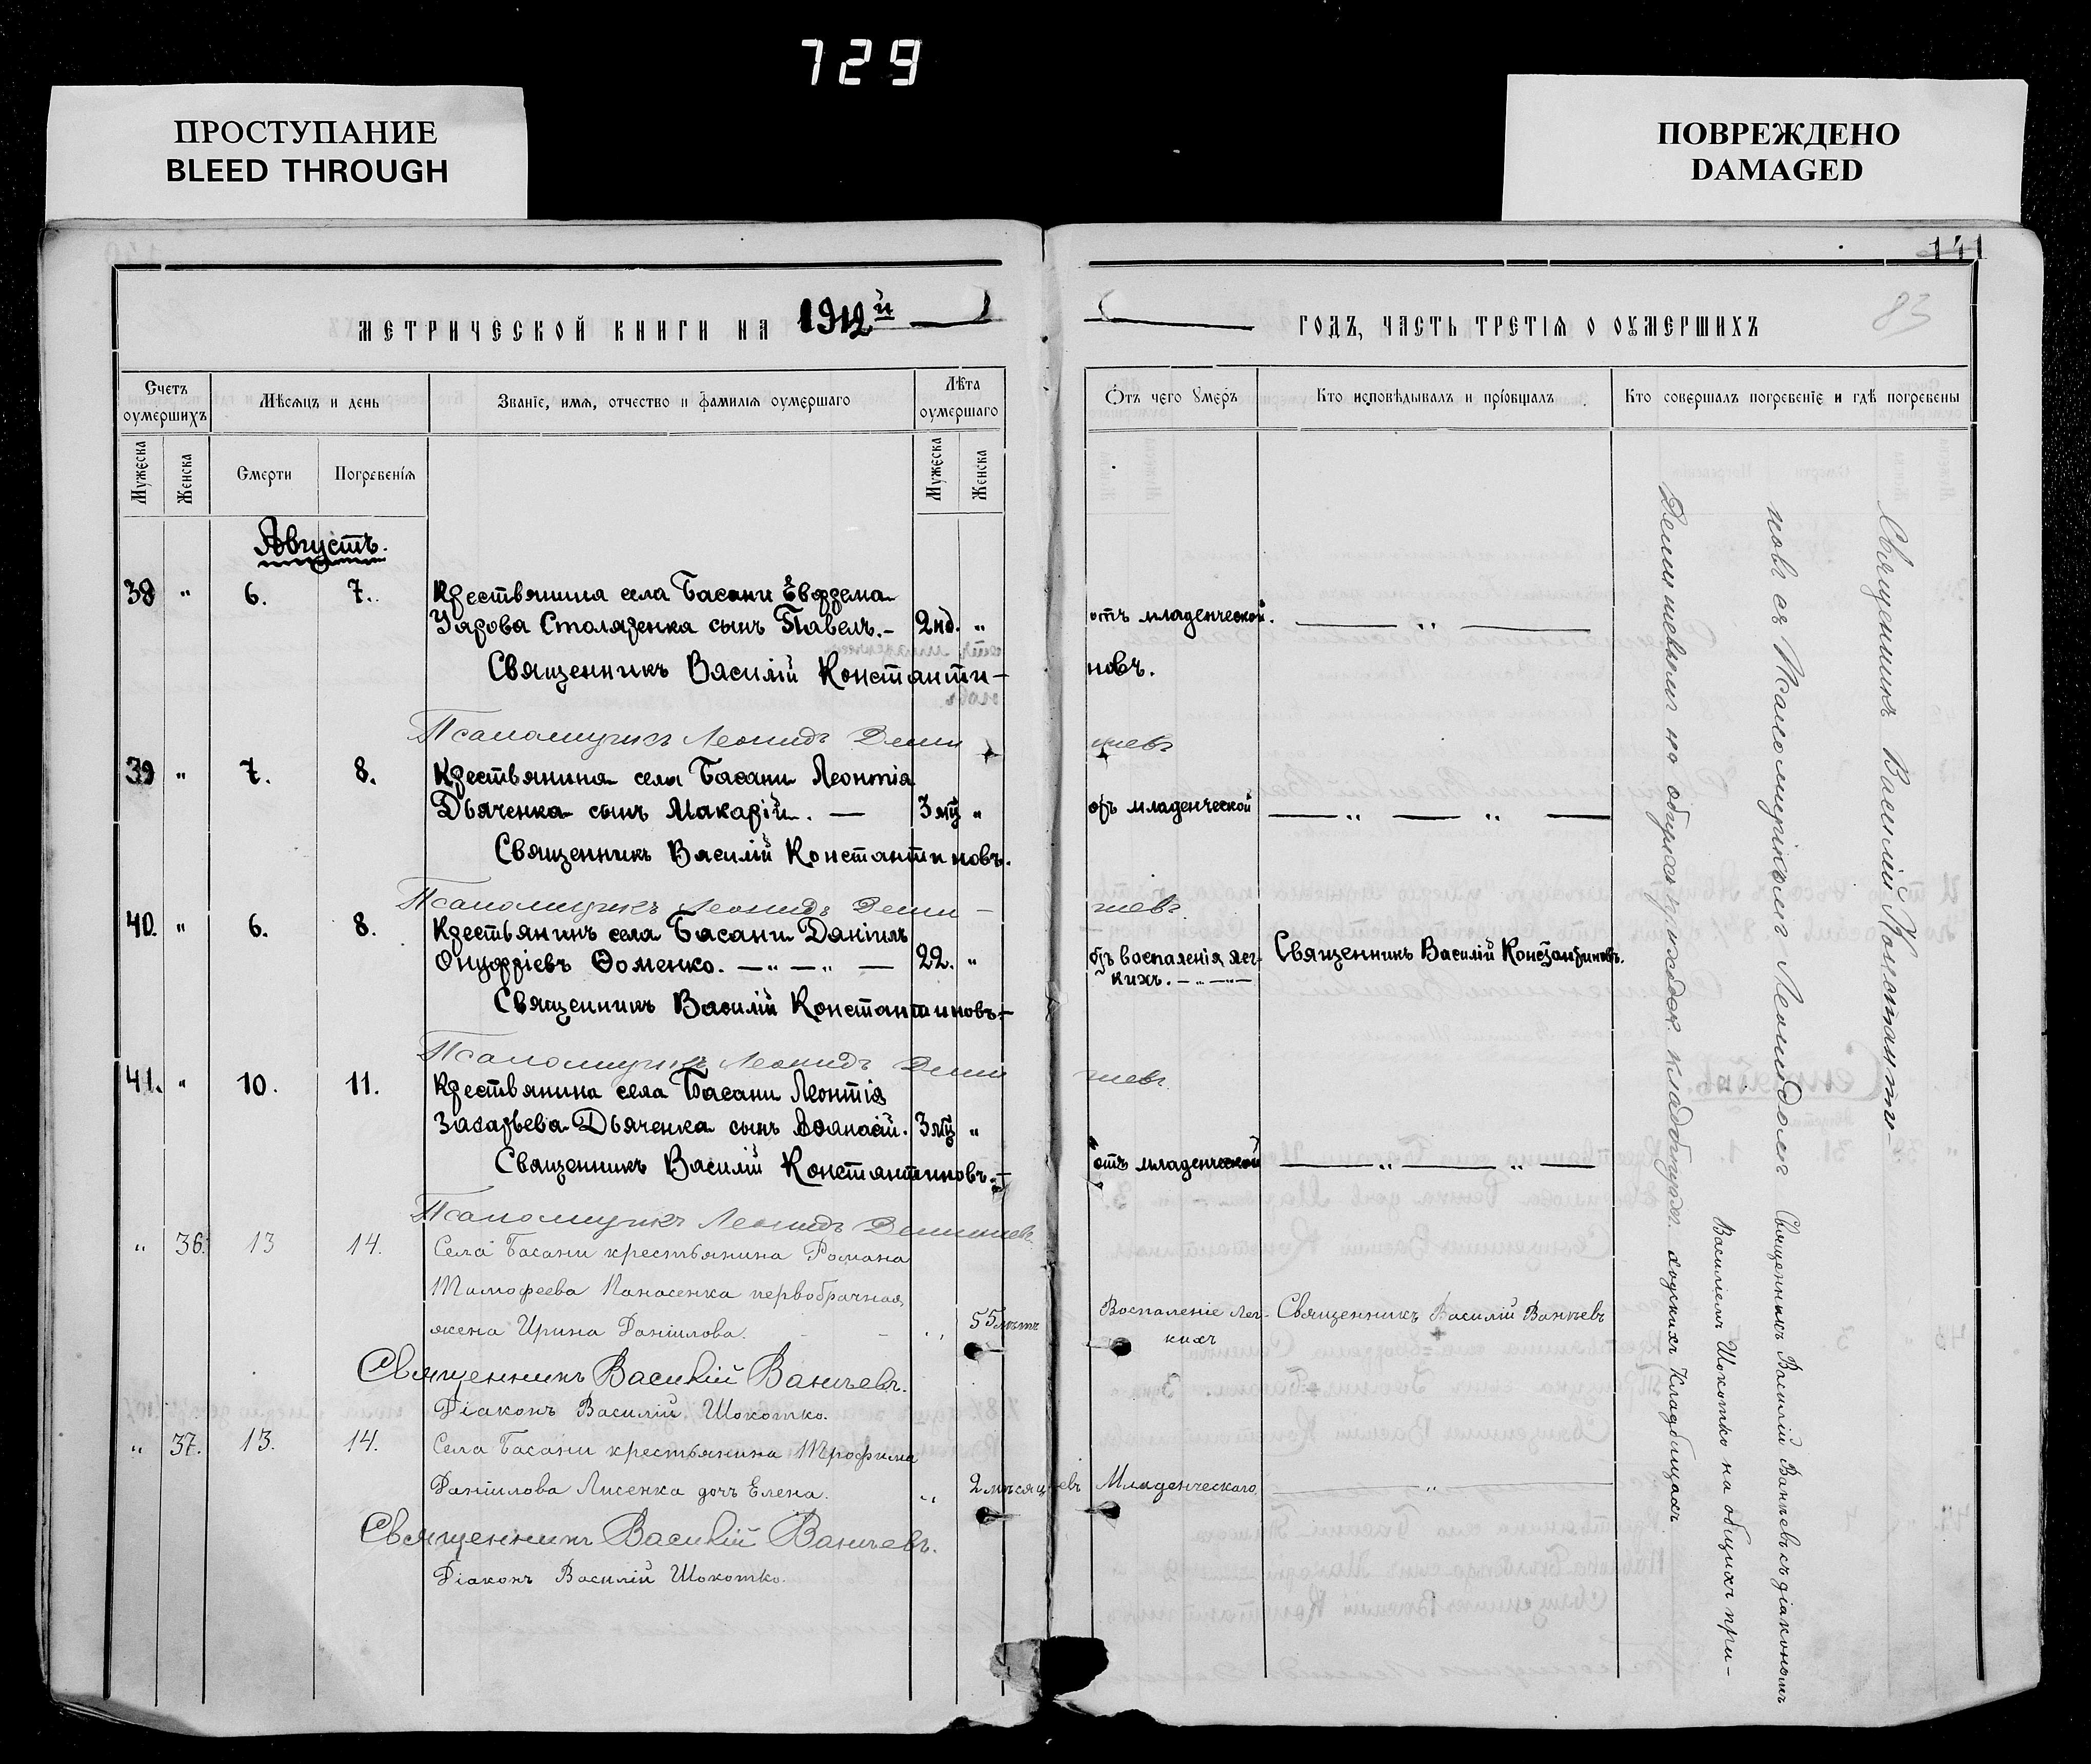 729
ПРОСТУПАНИЕ
BLEED THROUGH
ПОВРЕЖДЕНО
DAMAGED
141
83
МЕТРИЧЕСКОЙ КНИГИ НА 1912й
ГОДЪ, ЧАСТЬ ТРЕТІЯ О ОУМЕРШИХЪ
Счетъ оумершихъ
Мѣсяцъ и день
Званіе, имя, отчество и фамилія оумершаго
Лѣта оумершаго
Отъ чего умеръ
Кто исповѣдывалъ и пріобщалъ
Кто совершалъ погребеніе и гдѣ погребены
Мужеска
Женска
Смерти
Погребенія
Мужеска
Женска
Августъ.
38 " 6. 7. Крестьянина села Басани
Уарова Столяренка сынъ Павелъ.- 2 нд. " отъ младенческой. — " —
Священникъ Василій Константиновъ.
Псаломщикъ Леонидъ
39 " 7. 8. Крестьянина села Басани Леонтія
Дьяченка сынъ Макарій. — 3 мц " отъ младенческой — " — " —
Священникъ Василій Константиновъ.
Псаломщикъ Леонидъ
40. " 6. 8. Крестьянинъ села Басани Даніилъ
Онуфріевъ Ѳоменко. — " — " — 22. " отъ воспаленія лег- Священникъ Василій Константиновъ.
кихъ. — " —
Священникъ Василій Константиновъ.
Псаломщикъ Леонидъ
41. " 10. 11. Крестьянина села Басани Леонтія
Захарьева Дьяченка сынъ Аѳанасій. 3 мц " отъ младенческой — " — " —
Священникъ Василій Константиновъ.
Псаломщикъ Леонидъ
" 36. 13 14. Села Басани крестьянина Романа
Тимофеева Панасенка первобрачная
жена Ирина Даніилова. - - " 55 лѣтъ Воспаленіе лег- Священникъ Василій Ванчевъ
кихъ
Священникъ Василій Ванчевъ.
Діаконъ Василій Шокотко.
" 37. 13. 14. Села Басани крестьянина Трофима
Даніилова Лисенка дочь Елена. " 2 мѣсяцевъ Младенческаго — " —
Священникъ Василій Ванчевъ.
Діаконъ Василій Шокотко.
Священникъ Василій Константи-
новъ съ Псаломщикомъ Леонидомъ
на общихъ приходск. кладбищахъ.
Священникъ Василій Ванчевъ съ діакономъ
Василіемъ Шокотко на общихъ при-
ходскихъ кладбищахъ